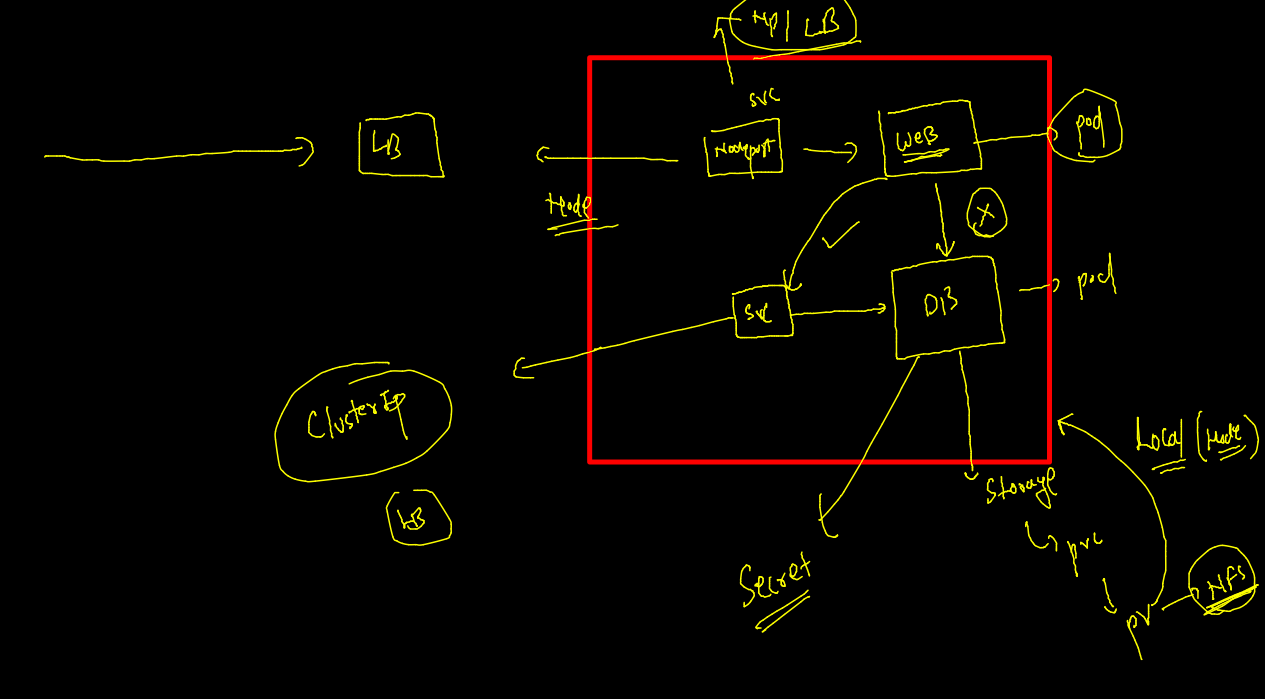 NP | LB
svc
LB
Nodeport
WEB
pod
Node
X
svc
DB
pod
ClusterIP
LB
Local (Node)
Storage
pvc
Secret
NFS
pv